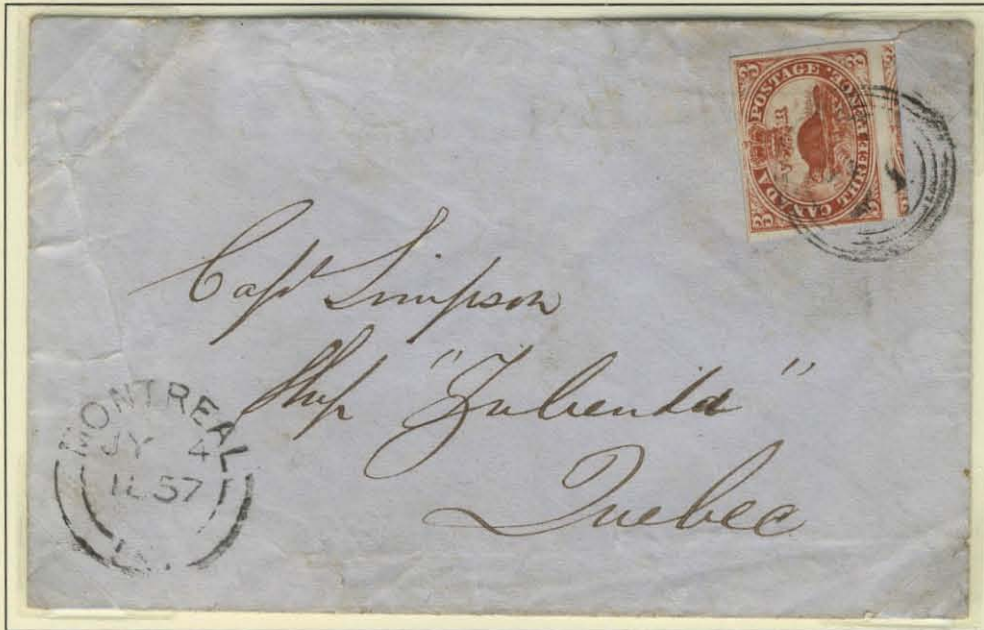 3 CANADA POSTAGE 3
3 THREE PENCE 3
V R
Capt Simpson
Ship "Zubenda"
Quebec
MONTREAL
JY 4
1857
L.C.